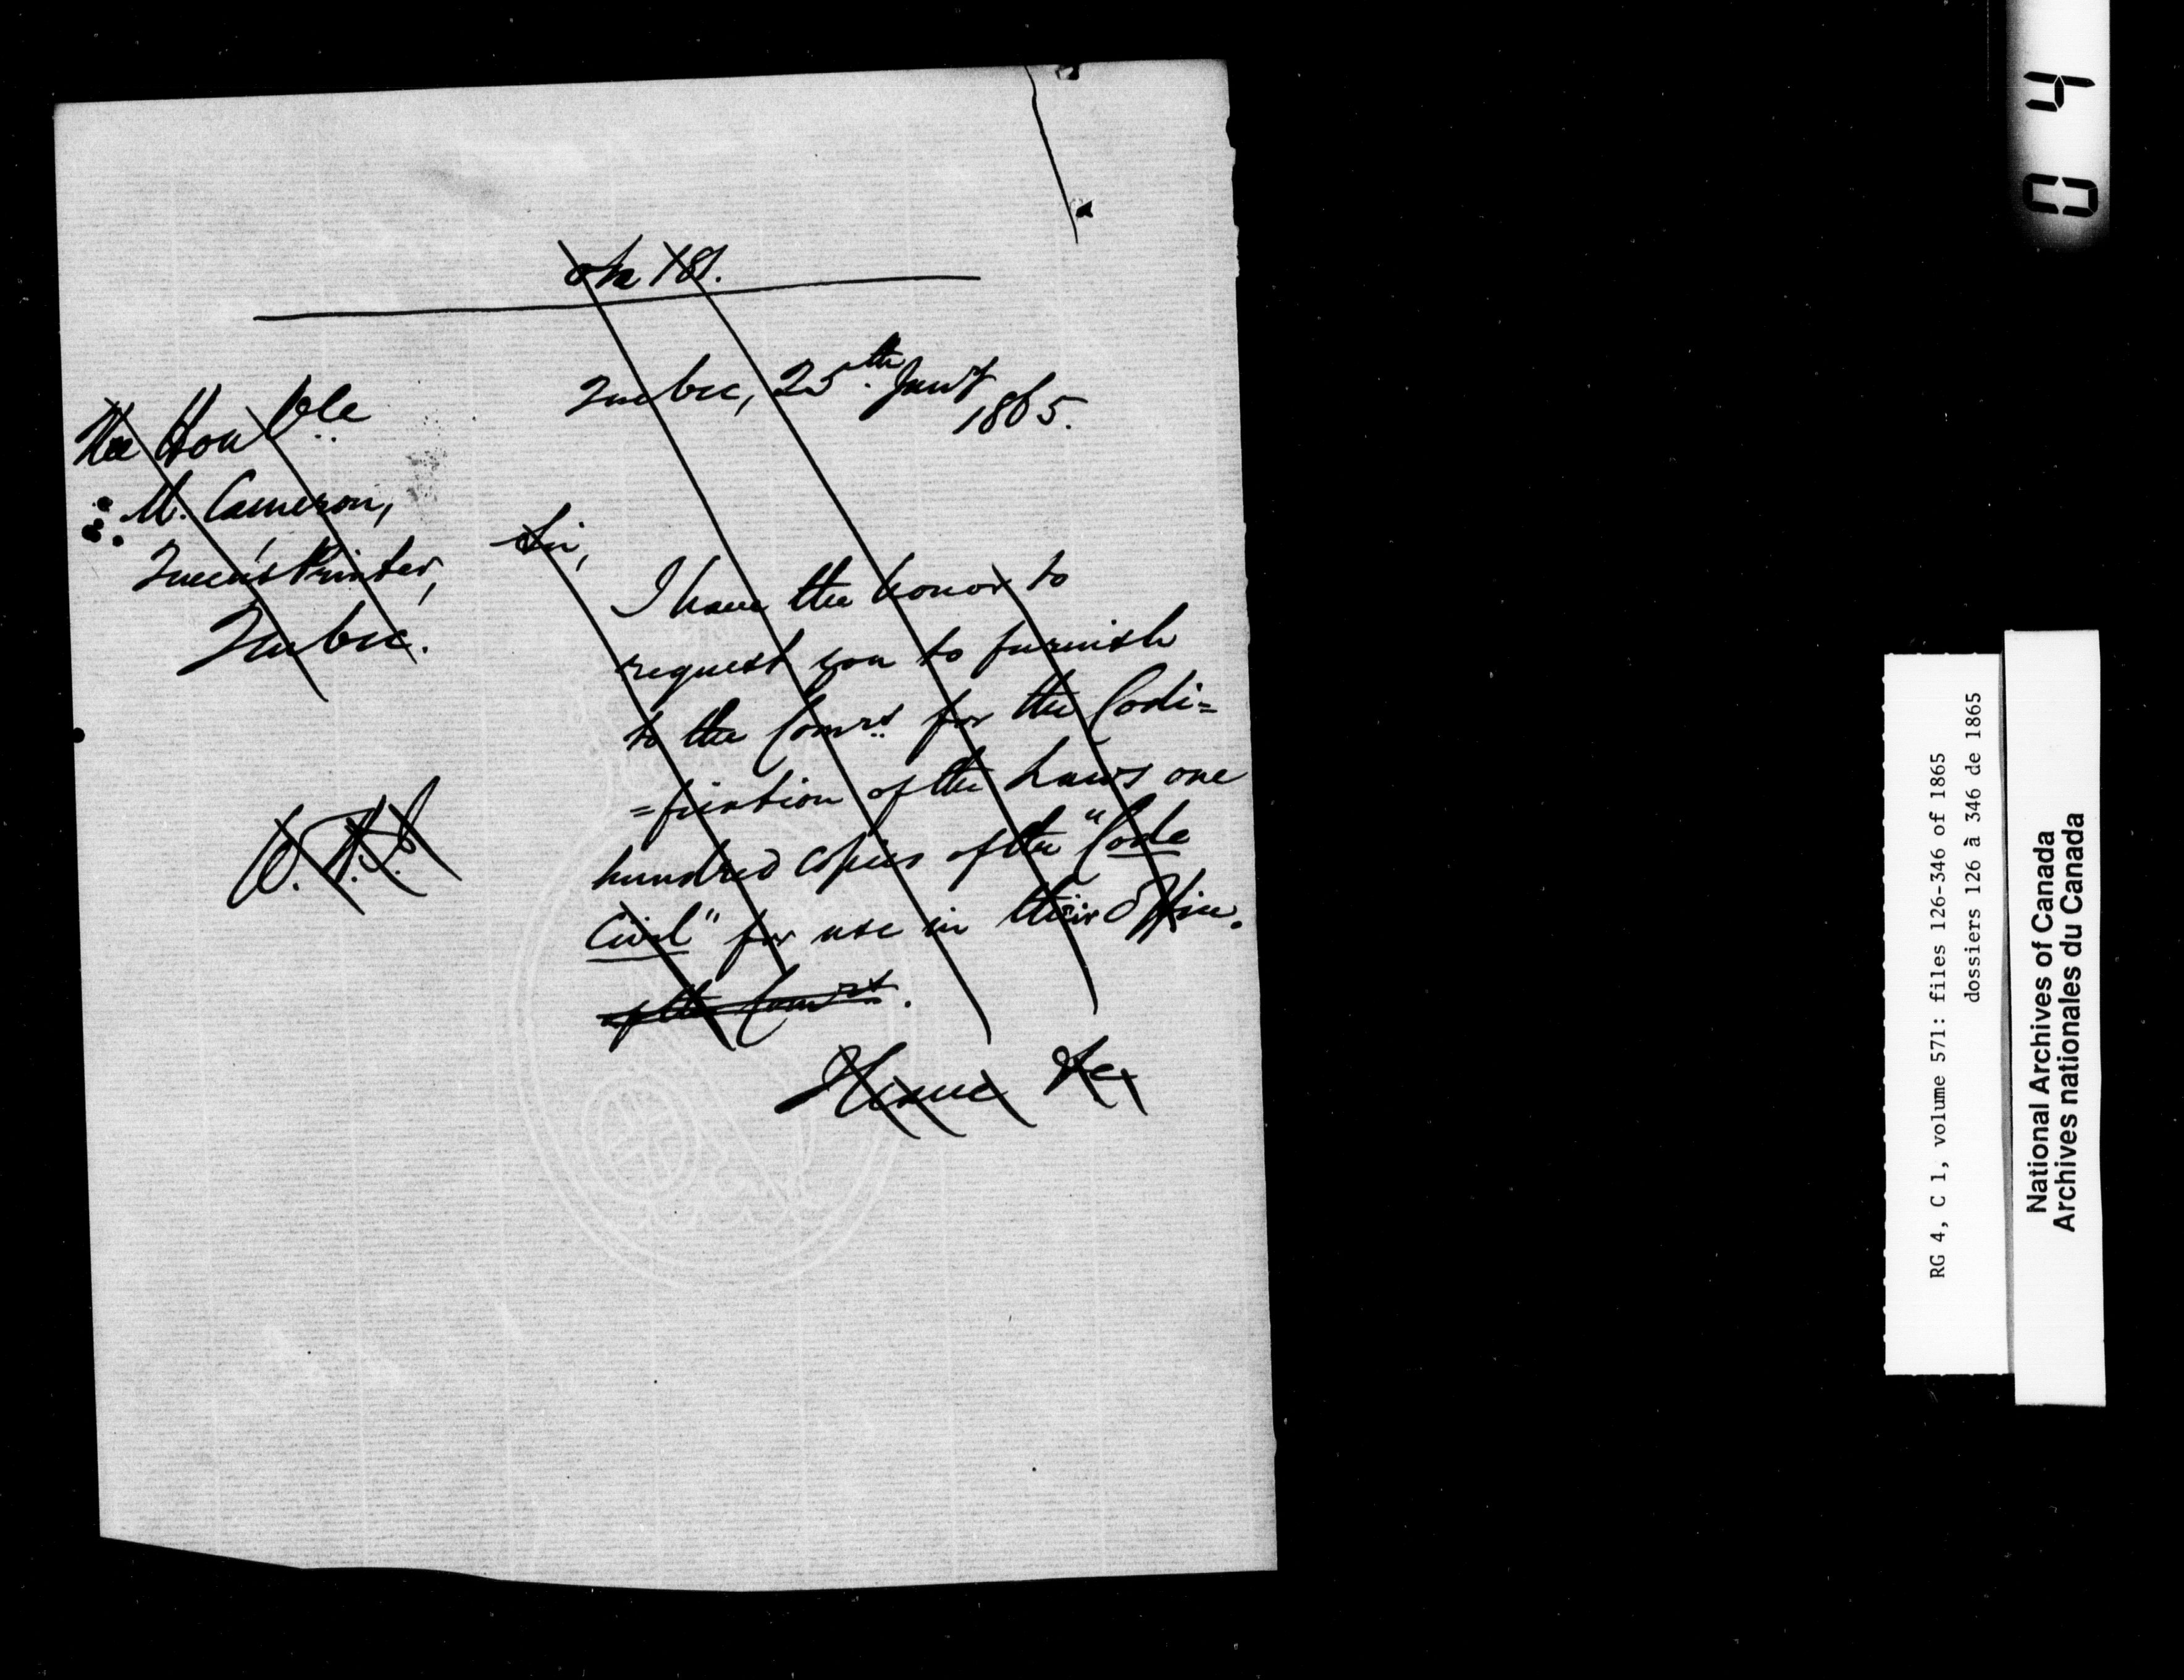 on 181.
Quebec, 25th Jany
1865.
The Honble
M. Cameron,
Queen's Printer,
Quebec.
Sir,
I have the honor to
request you to furnish
to the Comrs for the Codi=
=fication of the Laws one
hundred copies of the "Code
Civil" for use in their Office.
of the Comrs.
I have &c
04
RG 4, C 1, volume 571: files 126-346 of 1865
dossiers 126 à 346 de 1865
National Archives of Canada
Archives nationales du Canada